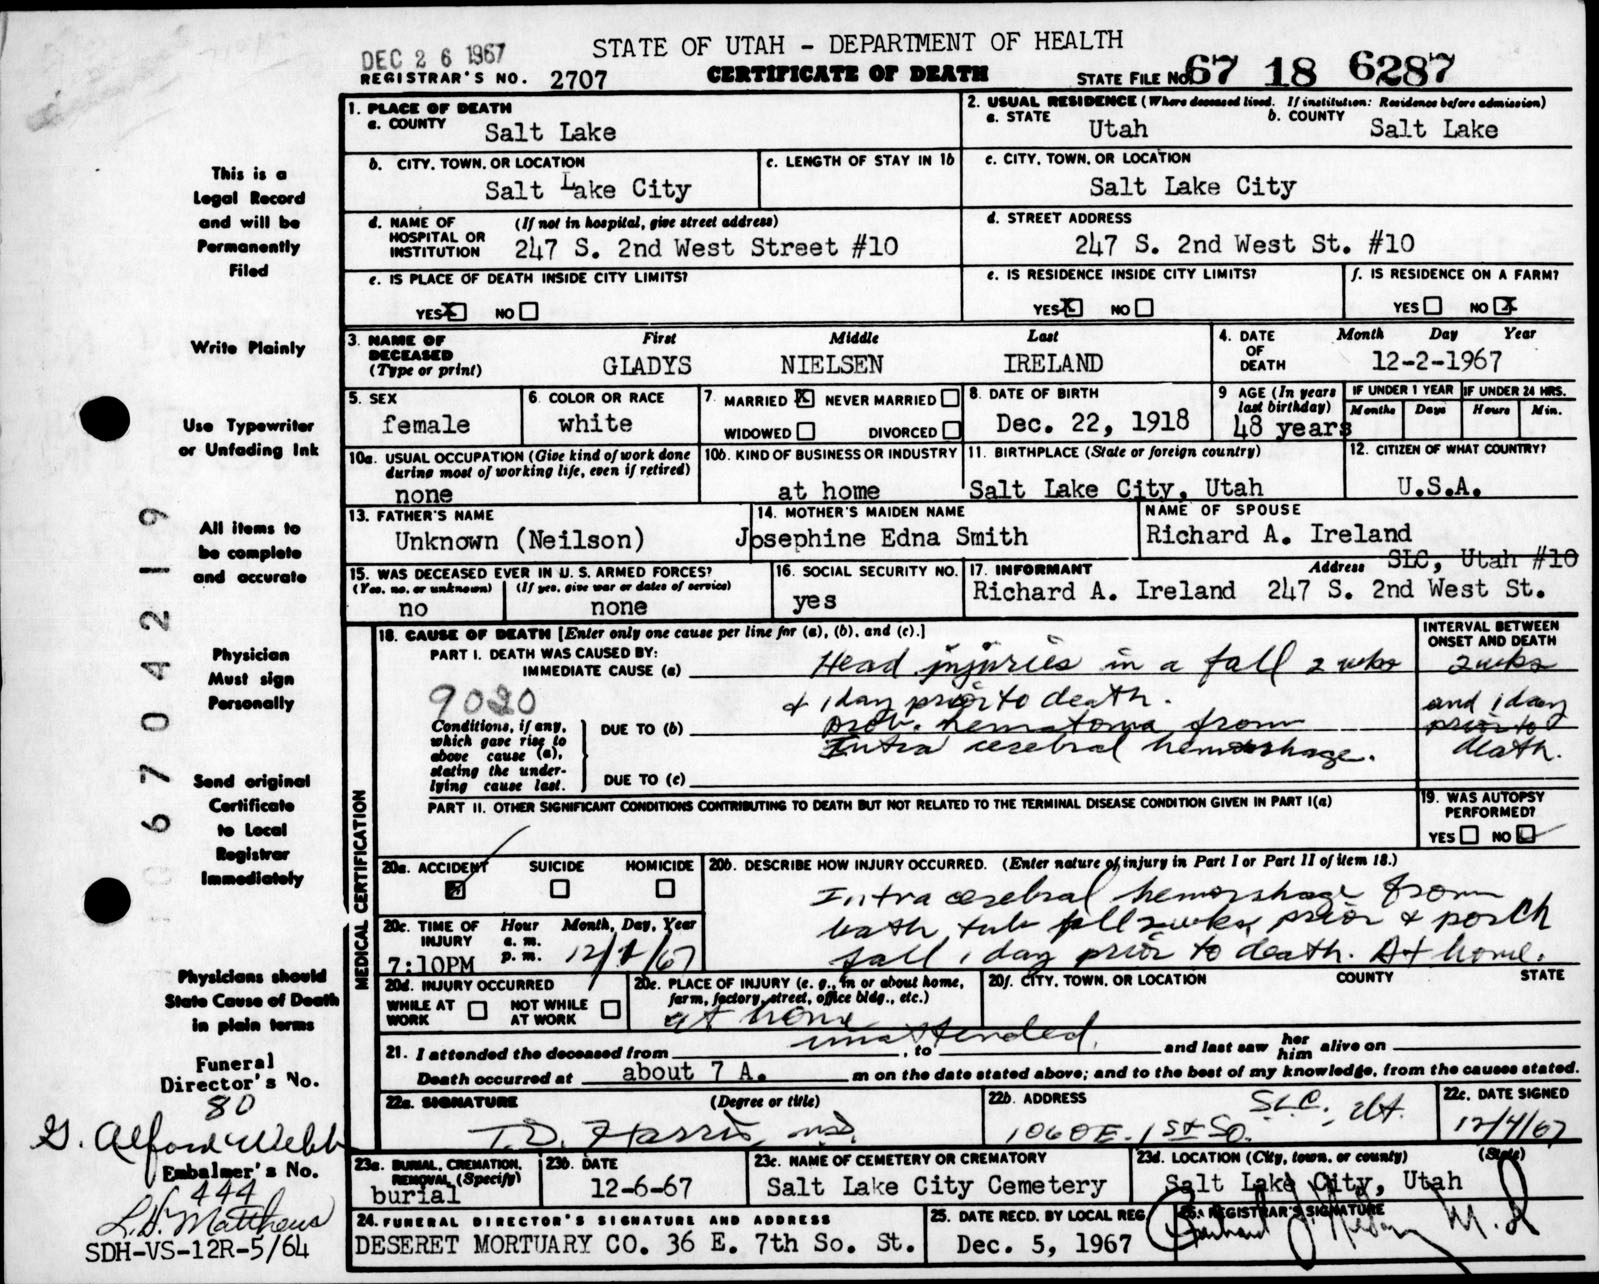 DEC 26 1967
STATE OF UTAH - DEPARTMENT OF HEALTH
REGISTRAR'S NO. 2707
CERTIFICATE OF DEATH
STATE FILE NO. 67 18 6287
1. PLACE OF DEATH
a. COUNTY
Salt Lake
2. USUAL RESIDENCE (Where deceased lived. If institution: Residence before admission)
a. STATE
Utah
b. COUNTY
Salt Lake
b. CITY, TOWN, OR LOCATION
Salt Lake City
c. LENGTH OF STAY IN 1b
c. CITY, TOWN, OR LOCATION
Salt Lake City
d. NAME OF HOSPITAL OR INSTITUTION
(If not in hospital, give street address)
247 S. 2nd West Street #10
d. STREET ADDRESS
247 S. 2nd West St. #10
e. IS PLACE OF DEATH INSIDE CITY LIMITS?
YES X NO
e. IS RESIDENCE INSIDE CITY LIMITS?
YES X NO
f. IS RESIDENCE ON A FARM?
YES NO X
3. NAME OF DECEASED (Type or print)
First Middle Last
GLADYS NIELSEN IRELAND
4. DATE OF DEATH
Month Day Year
12-2-1967
5. SEX
female
6. COLOR OR RACE
white
7. MARRIED X NEVER MARRIED
WIDOWED DIVORCED
8. DATE OF BIRTH
Dec. 22, 1918
9 AGE (In years last birthday)
48 years
IF UNDER 1 YEAR
Months Days
IF UNDER 24 HRS.
Hours Min.
10a. USUAL OCCUPATION (Give kind of work done during most of working life, even if retired)
none
10b. KIND OF BUSINESS OR INDUSTRY
at home
11. BIRTHPLACE (State or foreign country)
Salt Lake City, Utah
12. CITIZEN OF WHAT COUNTRY?
U.S.A.
13. FATHER'S NAME
Unknown (Neilson)
14. MOTHER'S MAIDEN NAME
Josephine Edna Smith
NAME OF SPOUSE
Richard A. Ireland
15. WAS DECEASED EVER IN U. S. ARMED FORCES?
(Yes, no, or unknown)
no
(If yes, give war or dates of service)
none
16. SOCIAL SECURITY NO.
yes
17. INFORMANT
Address SLC, Utah #10
Richard A. Ireland 247 S. 2nd West St.
MEDICAL CERTIFICATION
18. CAUSE OF DEATH [Enter only one cause per line for (a), (b), and (c).]
PART I. DEATH WAS CAUSED BY:
IMMEDIATE CAUSE (a) Head injuries in a fall 2 wks
& 1 day prior to death.
9020
Conditions, if any, which gave rise to above cause (a), stating the underlying cause last.
DUE TO (b) prob. hematoma from
Intra cerebral hemorrhage.
DUE TO (c)
INTERVAL BETWEEN ONSET AND DEATH
2 wks
and 1 day
prior to
death.
PART II. OTHER SIGNIFICANT CONDITIONS CONTRIBUTING TO DEATH BUT NOT RELATED TO THE TERMINAL DISEASE CONDITION GIVEN IN PART I(a)
19. WAS AUTOPSY PERFORMED?
YES NO
20a. ACCIDENT SUICIDE HOMICIDE
20b. DESCRIBE HOW INJURY OCCURRED. (Enter nature of injury in Part I or Part II of item 18.)
Intra cerebral hemorrhage from
bath tub fall 2 wks prior & porch
fall 1 day prior to death. At home.
20c. TIME OF INJURY
Hour Month, Day, Year
a. m.
p. m.
7:10PM
12/1/67
20d. INJURY OCCURRED
WHILE AT WORK NOT WHILE AT WORK
20e. PLACE OF INJURY (e. g., in or about home, farm, factory, street, office bldg., etc.)
at home
20f. CITY, TOWN, OR LOCATION COUNTY STATE
21. I attended the deceased from unattended, to and last saw her him alive on
Death occurred at about 7 A. m on the date stated above; and to the best of my knowledge, from the causes stated.
22a. SIGNATURE (Degree or title)
T.D. Harris, M.D.
22b. ADDRESS
S.L.C., Ut.
1060 E. 1st So.
22c. DATE SIGNED
12/4/67
23a. BURIAL, CREMATION, REMOVAL (Specify)
burial
23b. DATE
12-6-67
23c. NAME OF CEMETERY OR CREMATORY
Salt Lake City Cemetery
23d. LOCATION (City, town, or county) (State)
Salt Lake City, Utah
24. FUNERAL DIRECTOR'S SIGNATURE AND ADDRESS
DESERET MORTUARY CO. 36 E. 7th So. St.
25. DATE RECD. BY LOCAL REG.
Dec. 5, 1967
26. REGISTRAR'S SIGNATURE
This is a
Legal Record
and will be
Permanently
Filed
Write Plainly
Use Typewriter
or Unfading Ink
All items to
be complete
and accurate
Physician
Must sign
Personally
Send original
Certificate
to Local
Registrar
Immediately
Physicians should
State Cause of Death
in plain terms
Funeral
Director's No.
80
G. Alford Webb
Embalmer's No.
444
L.D. Matthews
SDH-VS-12R-5/64
0670 4219